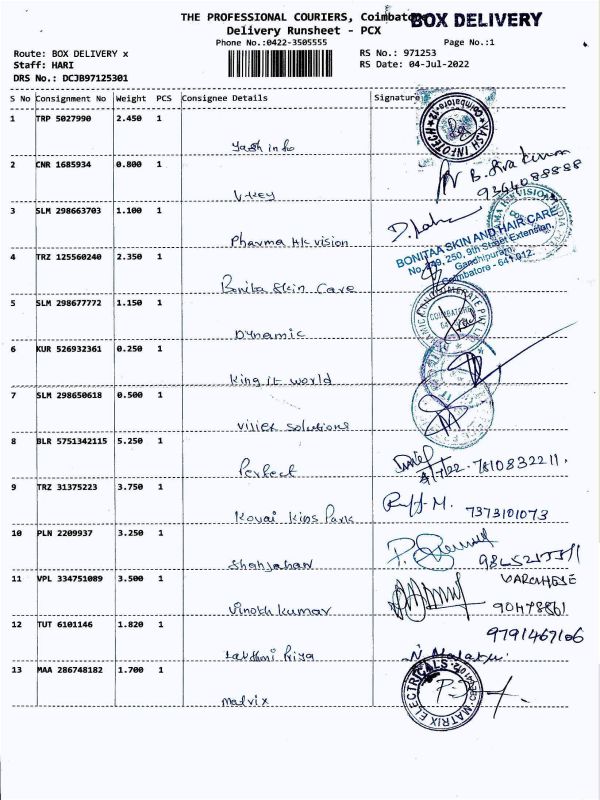 THE PROFESSIONAL COURIERS, Coimbatore
BOX DELIVERY
Delivery Runsheet - PCX
Phone No.:0422-3505555
Page No.:1
Route: BOX DELIVERY x
RS No.: 971253
Staff: HARI
RS Date: 04-Jul-2022
DRS No.: DCJB97125301
S No Consignment No Weight PCS Consignee Details Signature
1 TRP 5027990 2.450 1
Yash info
YASH INFOTECH Coimbatore-12
2 CNR 1685934 0.800 1
B. Sivakumar
V-key
3 SLM 298663703 1.100 1
Pharma Hk vision
4 TRZ 125560240 2.350 1
BONITAA SKIN AND HAIR CARE
No. 249, 250, 9th Street Extension,
Gandhipuram,
Coimbatore - 641 012.
Bonita Skin Care
5 SLM 298677772 1.150 1
Dynamic
6 KUR 526932361 0.250 1
King it world
7 SLM 298650618 0.500 1
solutions
8 BLR 5751342115 5.250 1
Perfect
4/7/22 7810832211.
9 TRZ 31375223 3.750 1
Kovai Kids Park
7373101073
10 PLN 2209937 3.250 1
Shahjahan
11 VPL 334751089 3.500 1
VARGHESE
Vinoth kumar
12 TUT 6101146 1.820 1
9791467106
Lakshmi Priya
13 MAA 286748182 1.700 1
MATRIX ELECTRICALS
Matrix